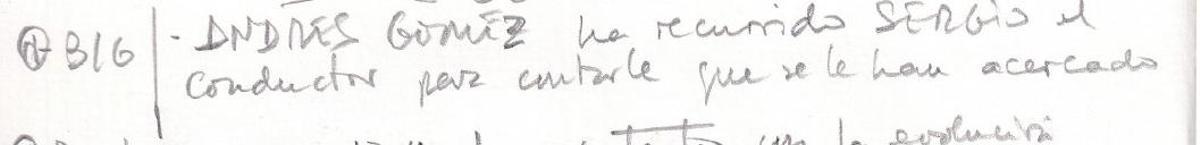 B16 - ANDRES GOMEZ ha recurrido SERGIO el
conductor para contarle que se le han acercado
con la evolución